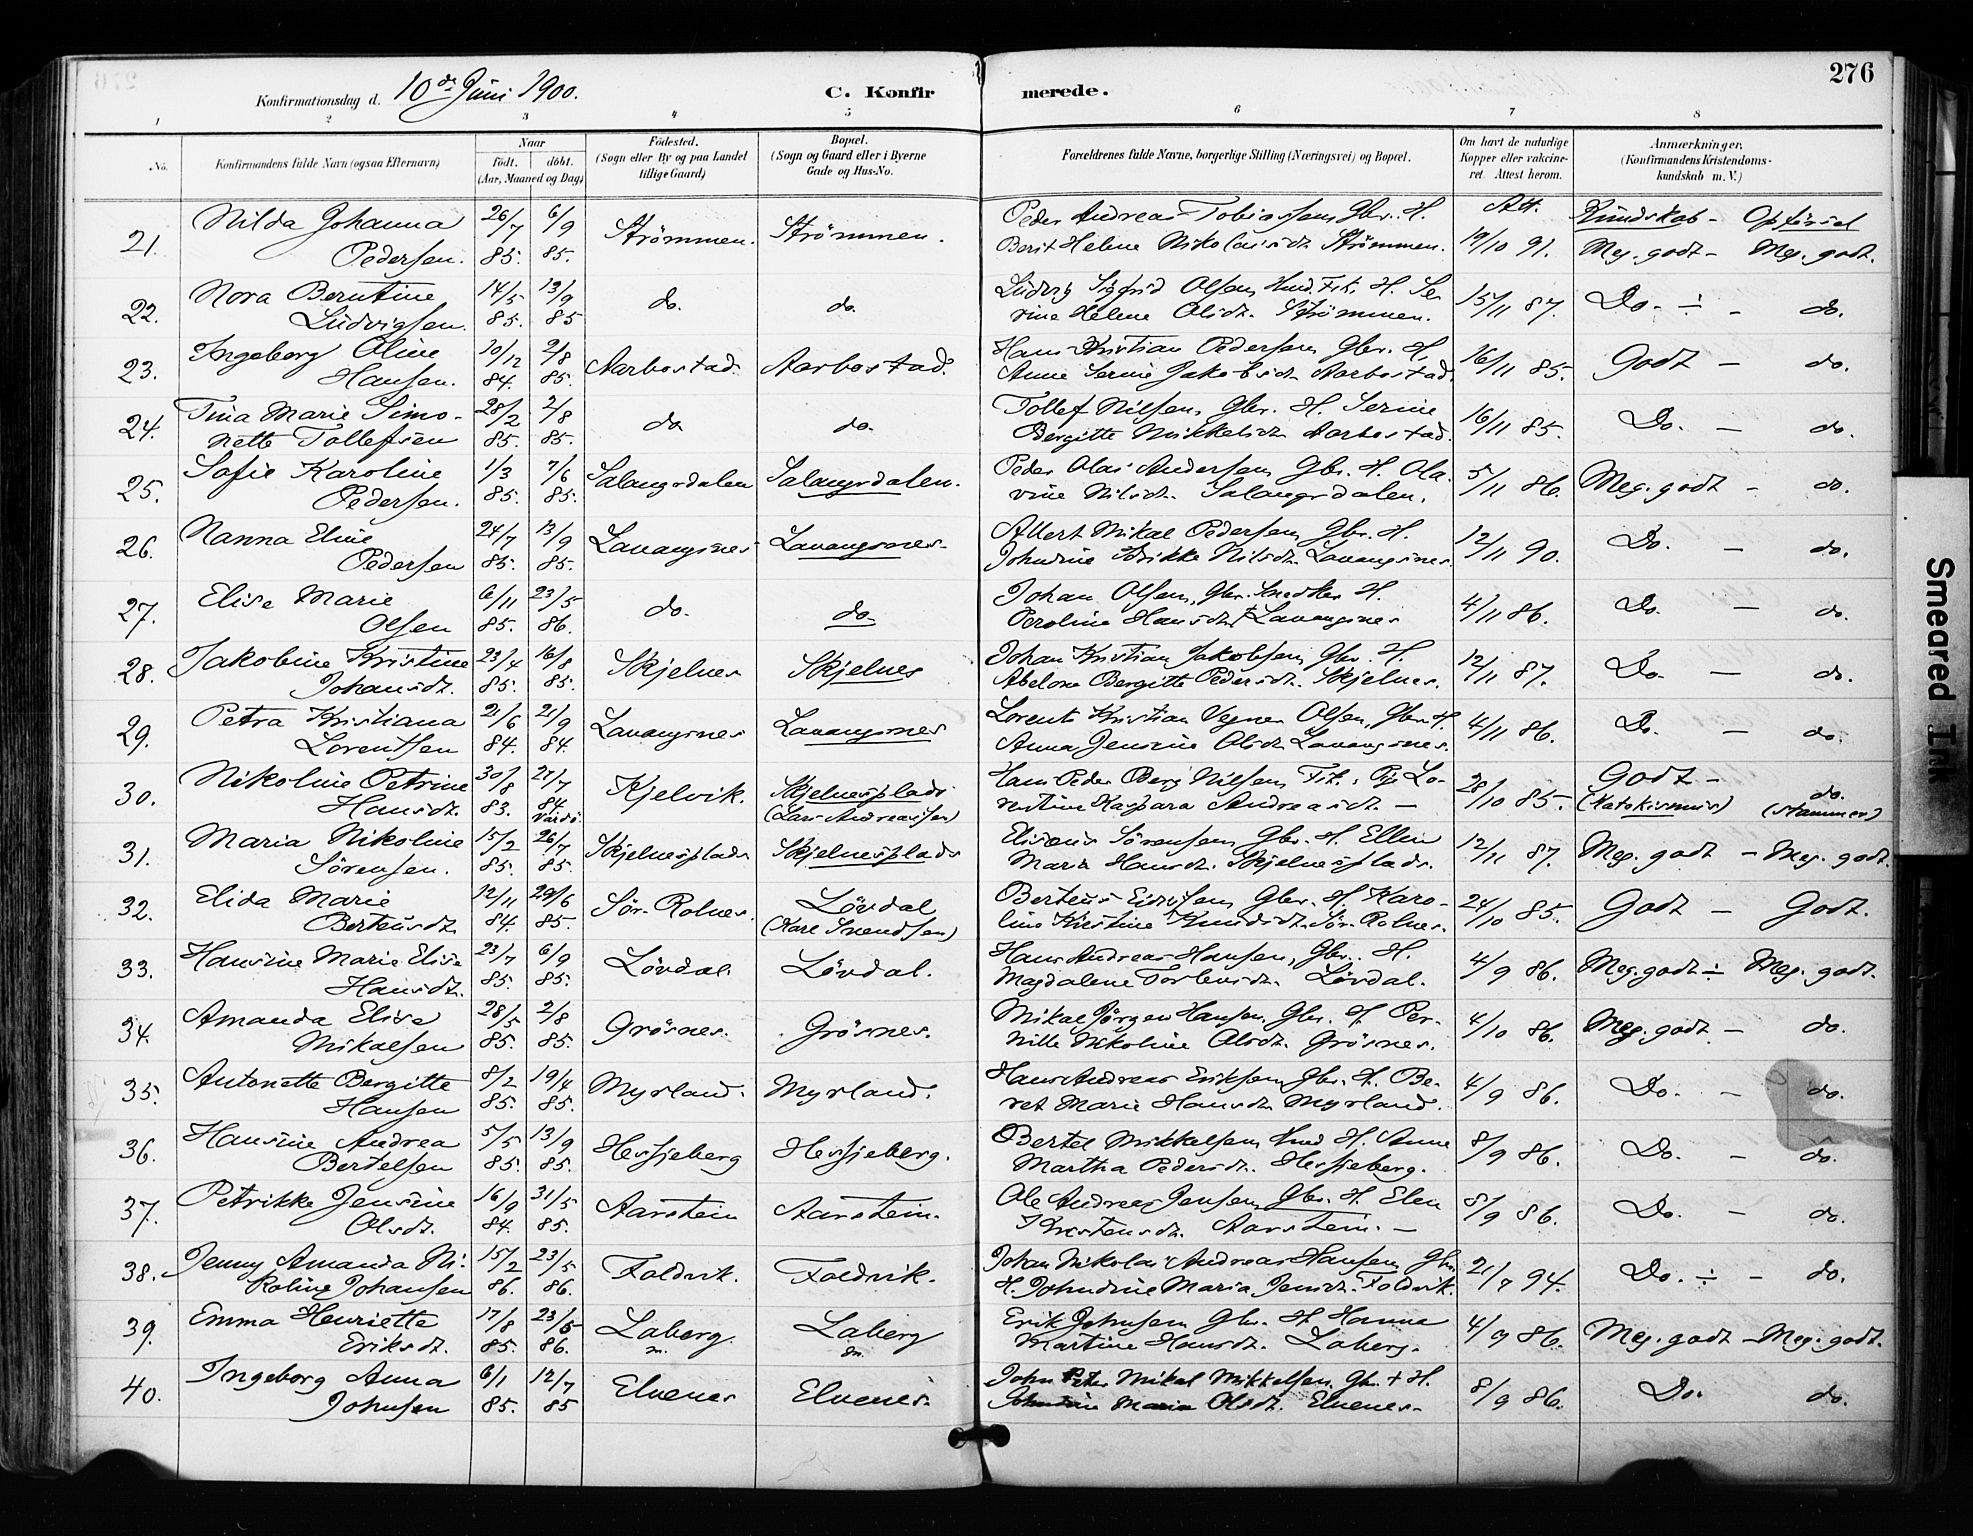 276
Konfirmationsdag d. 10de Juni 1900. C. Konfirmerede.
1 2 3 4 5 6 7 8
No. Konfirmandens fulde Navn (ogsaa Efternavn) Naar födt. döbt. (Aar, Maaned og Dag) Födested. (Sogn eller By og paa Landet tillige Gaard) Bopæl. (Sogn og Gaard eller i Byerne Gade og Hus-No. Forældrenes fulde Navne, borgerlige Stilling (Næringsvei) og Bopæl. Om havt de naturlige Kopper eller vaccineret. Attest herom. Anmærkninger. (Konfirmandens Kristendomskundskab m. V.)
Att. Kundskab - Opførsel
21. Hilda Johanna 26/7 6/9 Strömmen. Strömmen. Peder Andreas Tobiassen, Gbr. H.
Pedersen. 85. 85. Berit Helene Nikolaisdt. Strömmen. 19/10 91. Meg. godt - Meg. godt.
22. Nora Berntine 14/5 13/9 do. do. Ludvig Sigfrid Olsen, Insd. Fisk. H. Se
Ludvigsen. 85. 85 rine Helene Olsdt. Strömmen. 15/11 87. Do. ÷ - do.
23. Ingeborg Oline 10/12 2/8 Aarbostad. Aarbostad. Hans Kristian Pedersen, Gbr. H.
Hansen. 84. 85. Anne Serine Jakobsdt. Aarbostad. 16/11 85. Godt - do.
24. Tina Marie Simo- 28/2 2/8 do. do. Tollef Nilsen, Gbr. H. Serine
nette Tollefsen 85. 85. Bergitte Mikkelsdt. Aarbostad. 16/11 85. Do. - do.
25. Sofie Karoline 1/3 7/6 Salangsdalen Salangsdalen. Peder Olai Andersen, Gbr. H. Ola-
Pedersen. 85. 85. vine Nilsdt. Salangsdalen. 5/11 86. Meg. godt - do.
26. Nanna Eline 24/7 13/9 Lavangsnes Lavangsnes. Albert Mikal Pedersen, Gbr. H.
Pedersen 85. 85. Johndine Brikke Nilsdt. Lavangsnes. 12/11 90. Do. - do.
27. Elise Marie 6/11 23/5 do. do. Johan Olsen, Gbr. Snedker H.
Olsen 85. 86. Peroline Hansdt. Lavangsnes 4/11 86. Do. - do.
28. Jakobine Kristine 23/4 16/8 Skjelnes Skjelnes Johan Kristian Jakobsen, Gbr. H.
Johansdt. 85. 85. Abelone Bergitte Pedersdt. Skjelnes. 12/11 87. Do. - do.
29. Petra Kristiana 21/6 21/9 Lavangsnes Lavangsnes Lorents Kristian Vegner Olsen, Gbr. H.
Lorentsen 84. 84. Anna Jensine Olsdt. Lavangsnes. 4/11 86. Do. - do.
30. Nikoline Petrine 30/8 27/7 Kjelvik. Skjelnesplads Hans Peder Berg Nilsen, Fisk. Pige Lo-
Hansdt. 83. 84 Vardö. (Lars Andreassen) rentine Kaspara Andreasdt. - 28/10 85. Godt - (Katekismus) do. (stammer)
31. Maria Nikoline 15/2 26/7 Skjelnesplads Skjelnesplads Elisæus Sörensen, Gbr. H. Ellen
Sörensen. 85. 85. Maria Hansdt. Skjelnesplads. 12/11 87. Meg. godt - Meg. godt.
32. Elida Marie 12/11 29/6 Sör-Rolnes. Lövdal Berteus Eidissen, Gbr. H. Karo-
Berteusdt. 84. 85. (Kare Svendsen) line Kristine Knudsdt. Sör-Rolnes. 24/10 85. Godt - Godt.
33. Hansine Marie Elise 23/7 6/9 Lövdal. Lövdal. Hans Andreas Hansen, Gbr. H.
Hansdt. 85. 85. Magdalene Torbensdt. Lövdal. 4/9 86. Meg. godt ÷ Meg. godt.
34. Amanda Elise 28/5 2/8 Grösnes. Grösnes. Mikal Jörgen Hansen, Gbr. H. Per-
Mikalsen 85. 85. nille Nikoline Olsdt. Grösnes. 4/10 86. Meg. godt - do.
35. Antonette Bergitte 8/2 19/4 Myrland. Myrland. Hans Andreas Eriksen, Gbr. H. Be-
Hansen 85. 85. ret Marie Hansdt. Myrland. 4/9 86. Do. - do.
36. Hansine Andrea 5/5 13/9 Hessjeberg Hessjeberg. Bertel Mikkelsen, Insd. H. Anne
Bertelsen 85. 85. Martha Pedersdt. Hessjeberg. 8/9 86. Do. - do.
37. Petrikke Jensine 16/9 31/5 Aarstein Aarstein. Ole Andreas Jensen, Gbr. H. Elen
Olsdt. 84. 85. Kristensdt. Aarstein. - 8/9 86. Do. - do.
38. Jenny Amanda Ni- 15/2 23/5 Foldvik. Foldvik. Johan Nikolai Andreas Hansen, Gbr.
koline Johansen 86. 86. H. Johndine Maria Jensdt. Foldvik. 21/7 94. Do. ÷ - do.
39. Emma Henriette 17/8 23/5 Laberg Laberg Erik Johnsen Gbr. H. Hanna
Eriksdt. 85. 86. Martine Hansdt. Laberg. 4/9 86. Meg. godt - Meg. godt.
40. Ingeborg Anna 6/1 12/7 Elvenes Elvenes. John Peter Mikal Mikkelsen, Gbr. + H.
Johnsen 85. 85 Johndine Maria Olsdt. Elvenes. 8/9 86. Do. do.
Smeared Ink